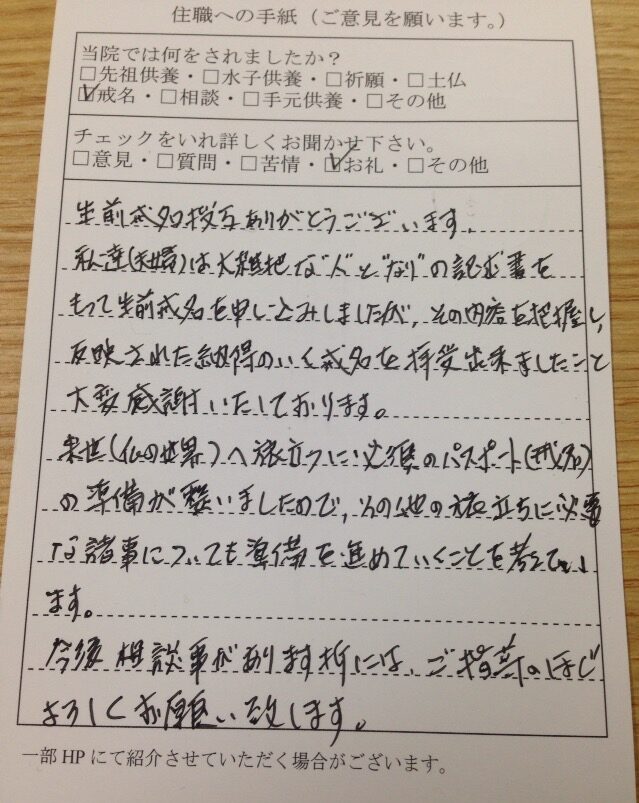 住職への手紙（ご意見を願います。）
当院では何をされましたか？
□先祖供養・□水子供養・□祈願・□土仏
☑戒名・□相談・□手元供養・□その他
チェックをいれ詳しくお聞かせ下さい。
□意見・□質問・□苦情・☑お礼・□その他
生前戒名授与ありがとうございます。
私達(夫婦)は大雑把な"人となり"の記述書を
もって生前戒名を申し込みしましたが、その内容を把握し、
反映された納得のいく戒名を拝受出来ましたこと
大変感謝いたしております。
来世(仏の世界)へ旅立つに必須のパスポート(戒名)
の準備が整いましたので、その他の旅立ちに必要
な諸事についても準備を進めていくことを考えてい
ます。
今後相談事があります折には、ご指導のほど
よろしくお願い致します。
一部HPにて紹介させていただく場合がございます。